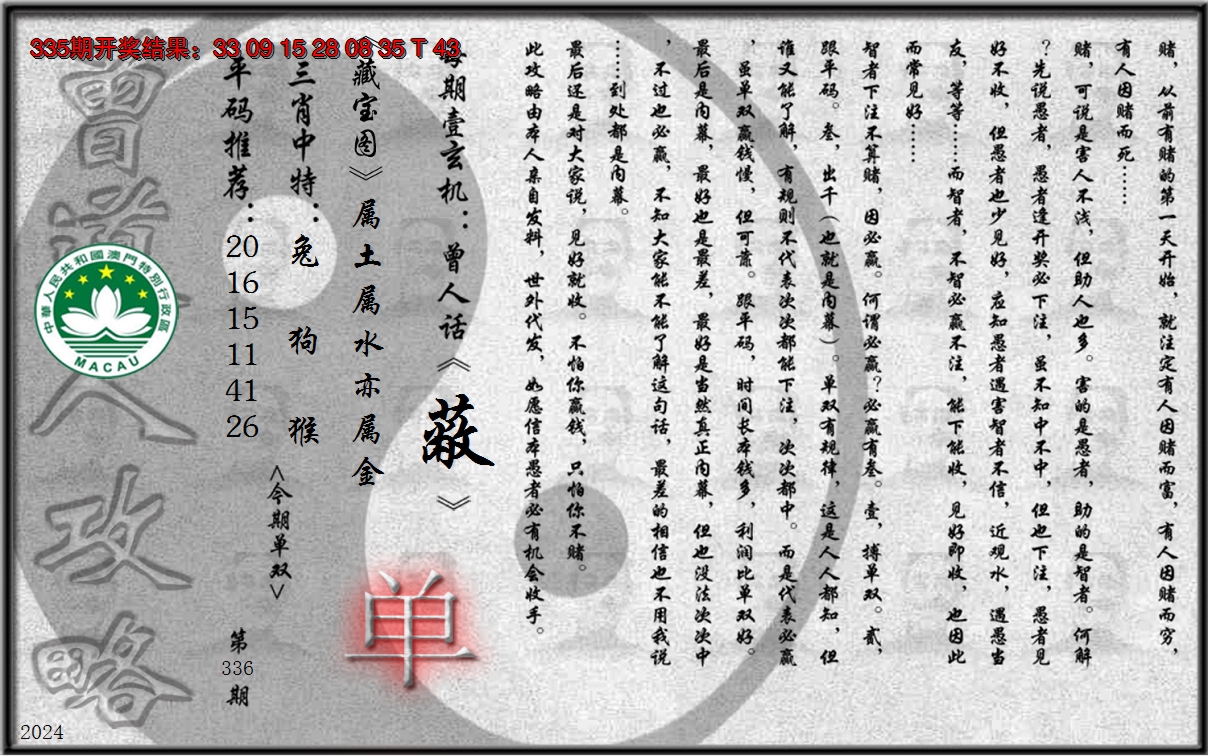 335期开奖结果：33 09 15 28 08 35 T 43
赌，从前有赌的第一天开始，就注定有人因赌而富，有人因赌而穷，
有人因赌而死……
赌，可说是害人不浅，但助人也多。害的是愚者，助的是智者。何解
？先说愚者，愚者逢开奖必下注，虽不知中不中，但也下注，愚者见
好不收，但愚者也少见好，应知愚者遇害智者不信，近观水，遇愚当
友，等等……而智者，不智必赢不注，能下能收，见好即收，也因此
而常见好……
智者下注不算赌，因必赢。何谓必赢？必赢有叁。壹，搏单双。贰，
跟平码。叁，出千（也就是内幕）。单双有规律，这是人人都知，但
谁又能了解，有规则不代表次次都能下注，次次都中。而是代表必赢
，虽单双赢钱慢，但可靠。跟平码，时间长本钱多，利润比单双好。
最后是内幕，最好也是最差，最好是当然真正内幕，但也没法次次中
，不过也必赢，不知大家能不能了解这句话，最差的相信也不用我说
……到处都是内幕。
最后还是对大家说，见好就收。不怕你赢钱，只怕你不赌。
此攻略由本人亲自发料，世外代发，如愿信本愚者必有机会收手。
每期壹玄机：曾人话《蔽》
《藏宝图》属土属水亦属金
三肖中特：兔 狗 猴
平码推荐：
20
16
15
11
41
26
<今期单双>
单
第
336
期
曾道人攻略
中華人民共和國澳門特別行政區
MACAU
2024